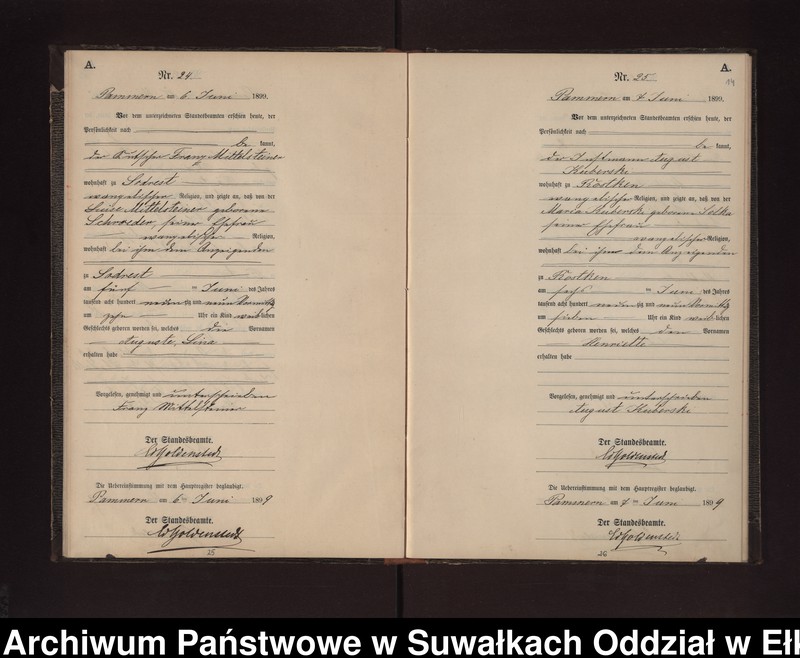 A.
Nr. 24
Pammern am 6. Juni 1899.
Vor dem unterzeichneten Standesbeamten erschien heute, der
Persönlichkeit nach
be kannt,
der Franz Mittelsteiner
wohnhaft zu Sodrest
evangelischer Religion, und zeigte an, daß von der
Luise Mittelsteiner geborene
Schroeder, seine Ehefrau
evangelischer Religion,
wohnhaft bei ihm dem Anzeigenden
zu Sodrest
am fünf ten Juni des Jahres
tausend acht hundert neunzig und neun Vormittags
um zehn Uhr ein Kind weiblichen
Geschlechts geboren worden sei, welches die Vornamen
Auguste, Lina
erhalten habe
Vorgelesen, genehmigt und unterschrieben
Franz Mittelsteiner
Der Standesbeamte.
Die Uebereinstimmung mit dem Hauptregister beglaubigt.
Pammern am 6ten Juni 1899
Der Standesbeamte.
25
A.
14
Nr. 25
Pammern am 7 Juni 1899.
Vor dem unterzeichneten Standesbeamten erschien heute, der
Persönlichkeit nach
be kannt,
der Instmann August
Kuberski
wohnhaft zu Rostken
evangelischer Religion, und zeigte an, daß von der
Maria Kuberski geborene
seine Ehefrau
evangelischer Religion,
wohnhaft bei ihm dem Anzeigenden
zu Rostken
am sechs ten Juni des Jahres
tausend acht hundert neunzig und neun Vormittags
um sieben Uhr ein Kind weiblichen
Geschlechts geboren worden sei, welches den Vornamen
Henriette
erhalten habe
Vorgelesen, genehmigt und unterschrieben
August Kuberski
Der Standesbeamte.
Die Uebereinstimmung mit dem Hauptregister beglaubigt.
Pammern am 7ten Juni 1899
Der Standesbeamte.
26
Archiwum Państwowe w Suwałkach Oddział w Ełk